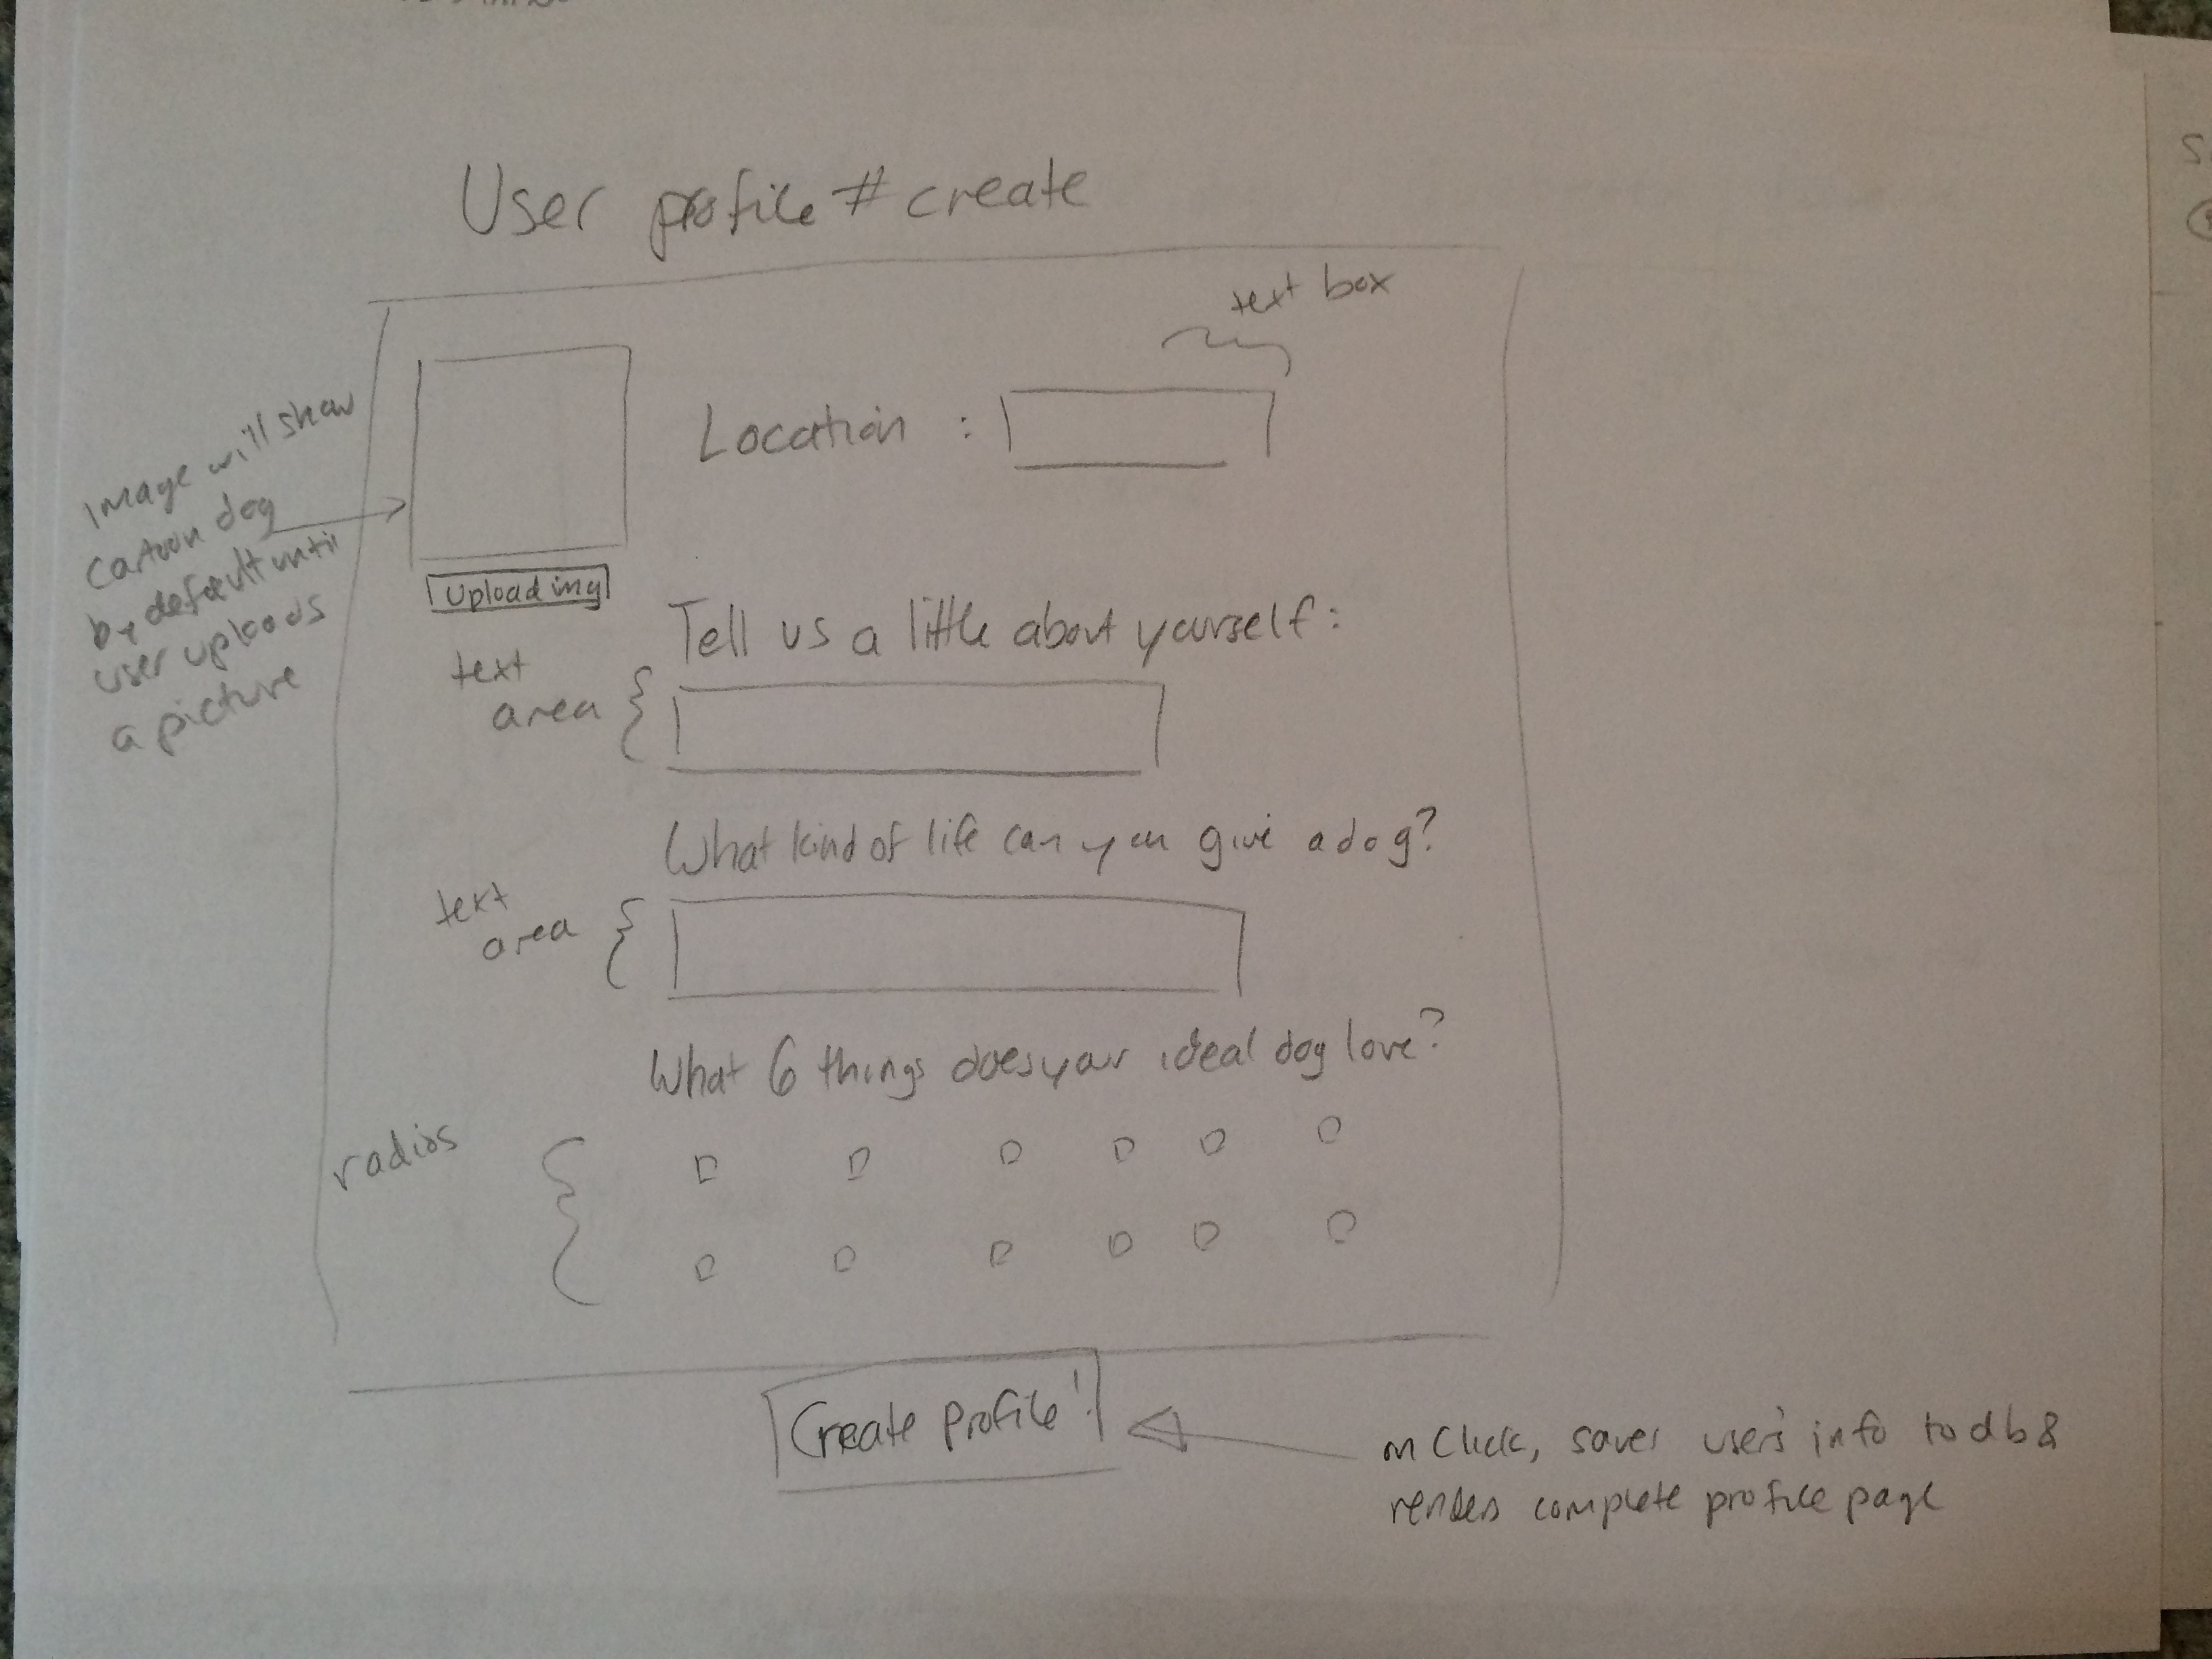 User profile#create
text box
Location :
Image will show
cartoon dog
by default until
user uploads
a picture
Upload img
Tell us a little about yourself:
text
area
What kind of life can you give a dog?
text
area
What 6 things does your ideal dog love?
radios
Create profile!
on Click, saves user's info to db &
renders complete profile page